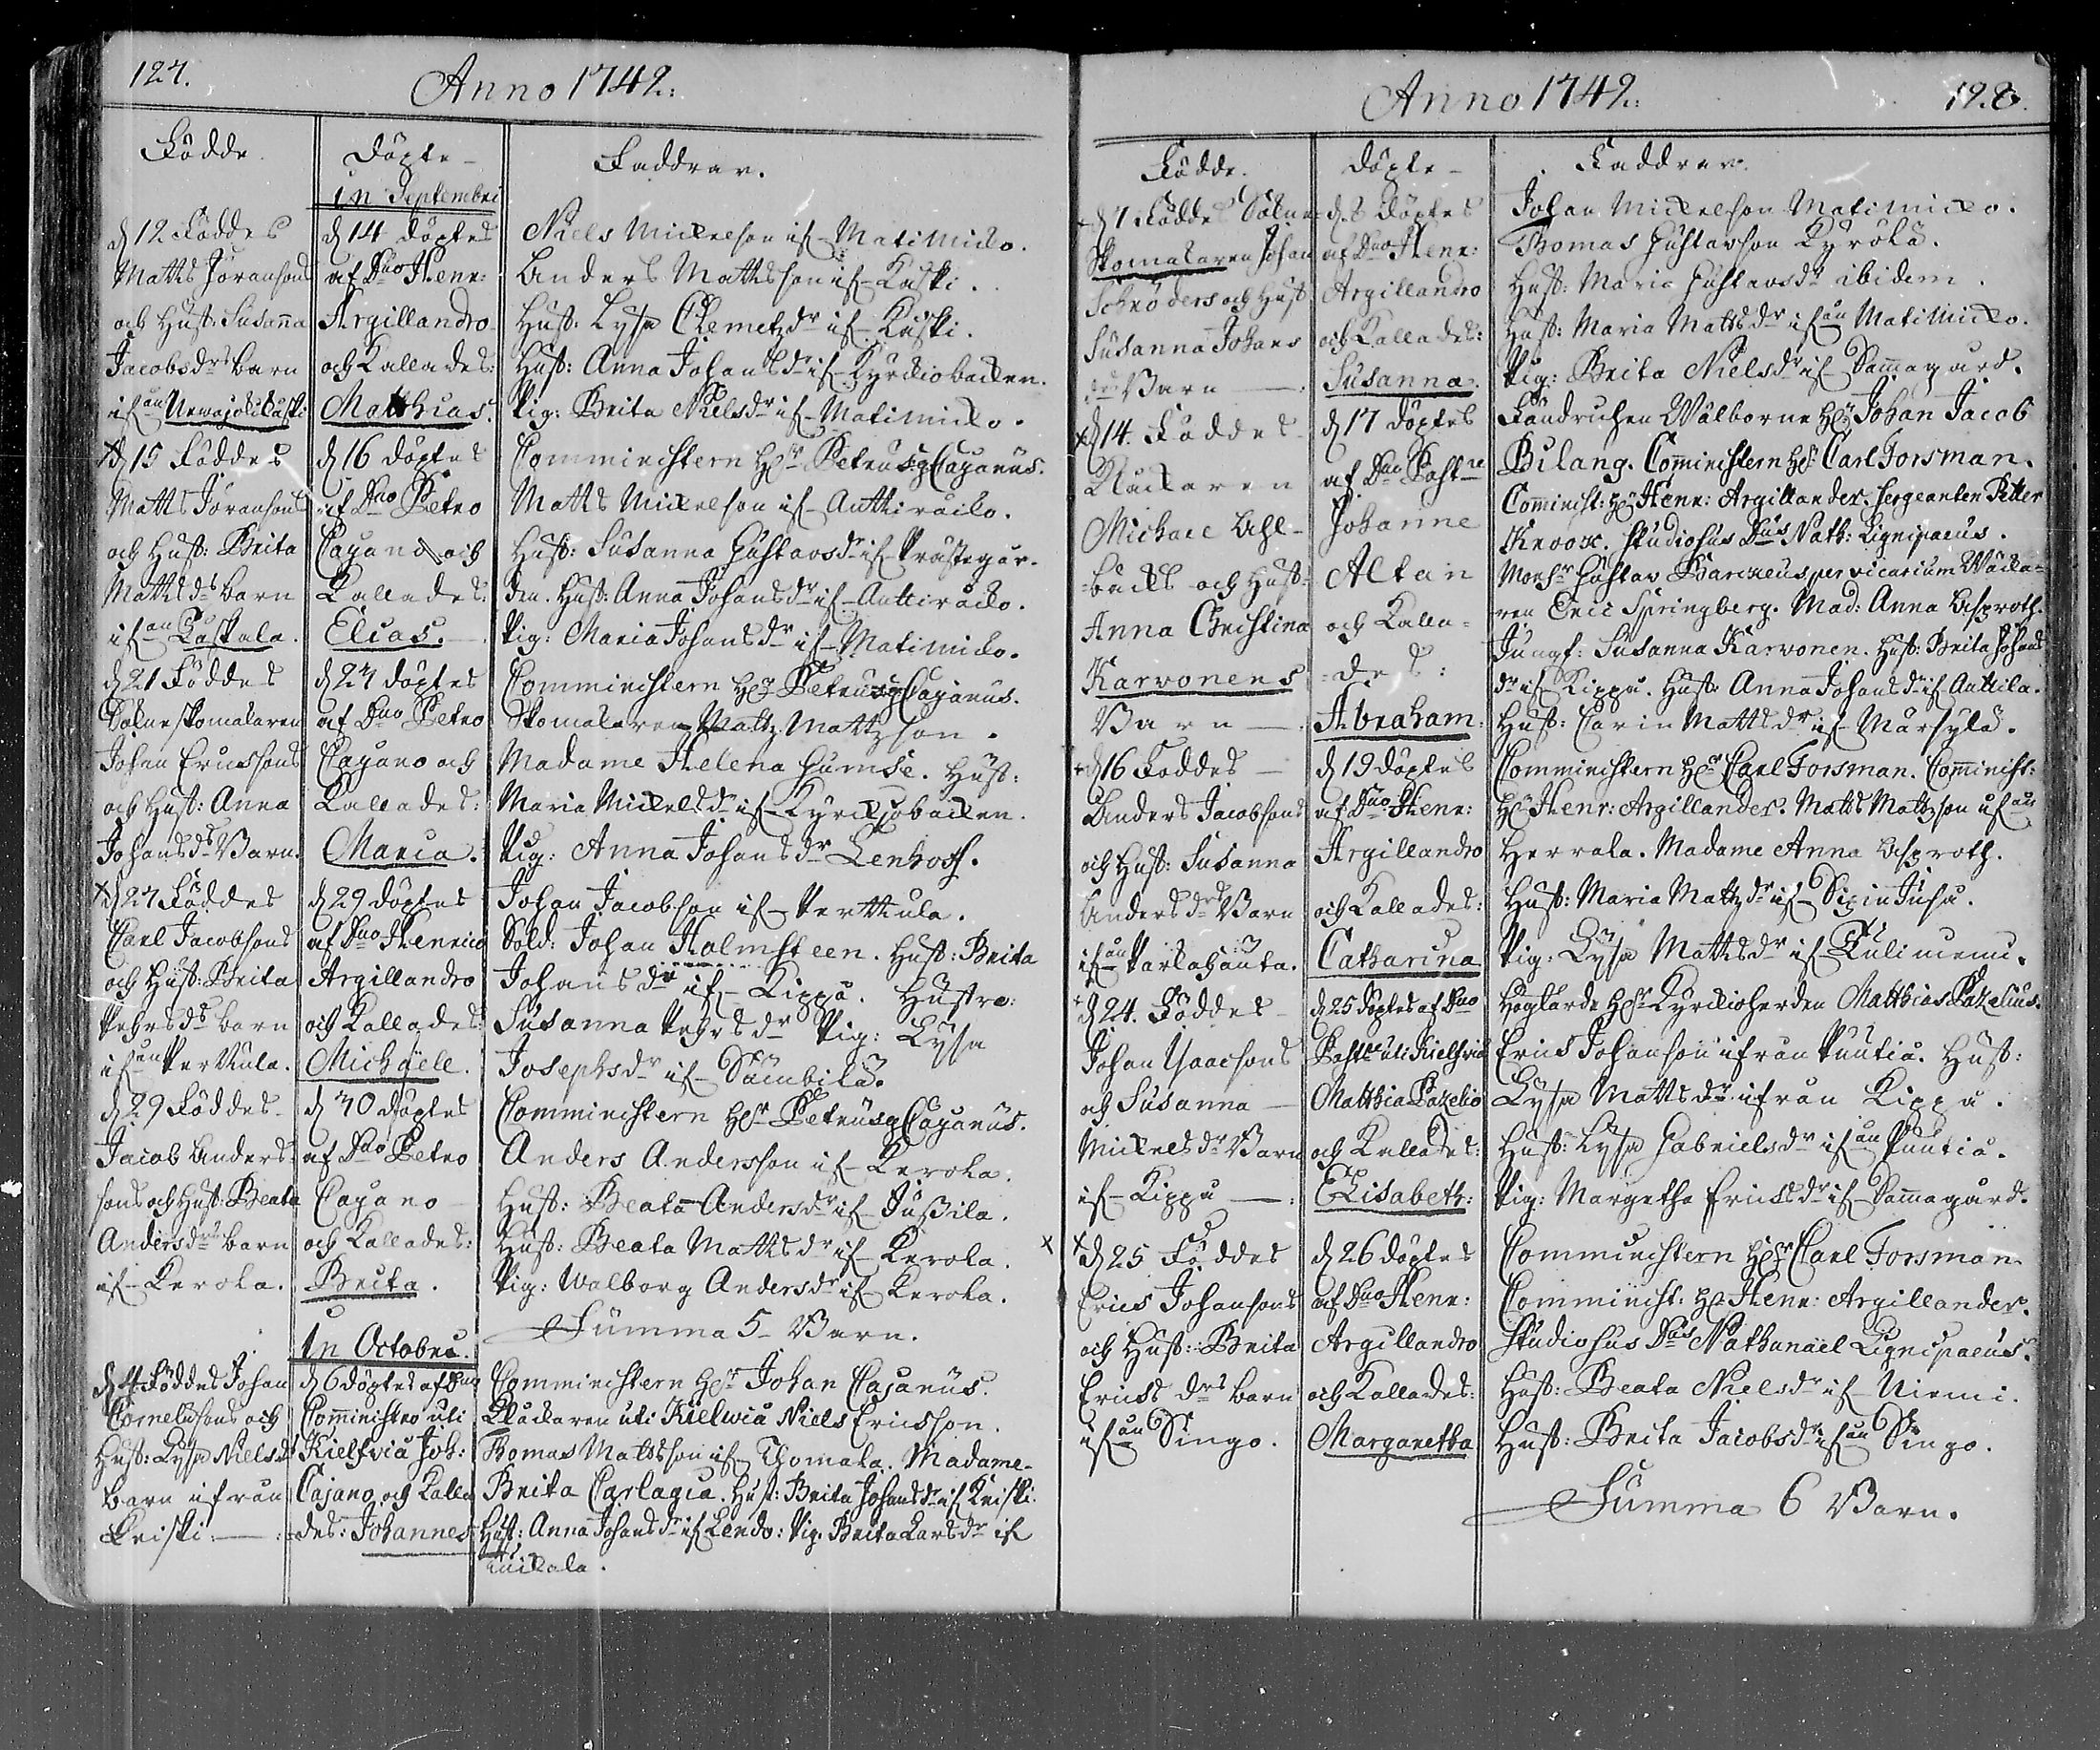 127.
Anno 1742.:
Födde.
Döpte
Faddrar.
in Septembri
d 12 Föddes
Matts Joransons
och Hust: Susanna
Jacobsdrs barn
if:an Kaski
d 14 Döptes
af Dno Henr:
Argillandro
och Kallades:
Matthias.
Niels Mickelson if: Matimicko.
Anders Mattsson if: Kaski.
Hust: Lysa Clemetzdr if: Kaski.
Hust: Anna Johansdr if: Kyrckiobacken.
Pig: Brita Nielsdr if: Matimicko.
d 15 Föddes
Matts Joransons
och Hust: Brita
Mattsdrs barn
if:an Kaskala.
d 16 döptes
af Dno Petro
Cajano och
Kallades:
Elias.
Comministern Hr Petrus Cajanus.
Matts Mickelson if: Anttiracko.
Hust: Susanna Gustavsdr if: Prästegår-
den. Hust: Anna Johansdr if: Anttiracko.
Pig: Maria Johansdr if: Matimicko.
d 21 Föddes
Sokneskomakaren
Johan Ericssons
och Hust: Anna
Johansdrs Barn.
d 24 döptes
af Dno Petro
Cajano och
Kallades:
Maria.
Comministern Hr Petrus Cajanus.
Skomakaren Mattz Mattzson.
Madame Helena Gumse. Hust:
Maria Mickelsdr if: Kyrckjobacken.
Pig: Anna Johansdr Lenkoss.
d 27 Föddes
Carl Jacobsons
och Hust: Brita
Pehrsdrs barn
if:an Perttula.
d 29 döptes
af Dno Henrico
Argillandro
och Kallades:
Michaell.
Johan Jacobson if: Perttula.
Sold: Johan Holmsteen. Hust: Brita
Johansdr if: Kippa. Hustro:
Susanna Pehrsdr Pig: Lysa
Josephsdr if: Sämbilä.
d 29 Föddes
Jacob Anders-
sons och Hust: Beata
Andersdrs barn
if: Kerola.
d 30 döptes
af Dno Petro
Cajano
och Kallades:
Brita.
Comministern Hr Petrus Cajanus.
Anders Andersson if: Kerola.
Hust: Beata Andersdr if: Jußila.
Hust: Beata Mattsdr if: Kerola.
Pig: Walborg Andersdr if: Kerola.
Summa 5 Barn.
In Octobri.
d 4 Föddes Johan
Cornelisons och
Hust: Lysa Nielsdrs
barn ifrån
Keiski.
d 6 döptes af Dno
Comministro uti
Kielfviä Joh:
Cajano och Kalla
des: Johannes
Comministern Hr Johan Cajanus.
Klackaren uti Kielwiä Niels Ericsson.
Thomas Mattsson if: Thomala. Madame
Brita Carlagia. Hust: Brita Johansdr if: Keiski.
Hust: Anna Johansdr if: Lendo: Pig: Brita Larsdr if
Kuickala.
Anno 1742.:
128.
Födde.
Döpte
Faddrar.
d 7 Föddes Sokne-
skomakaren Johan
Schroders och Hust
Susanna Johans
drs Barn
d 8 Döptes
af Dno Henr:
Argillandro
och Kallades:
Susanna.
Johan Mickelson Matimicko.
Thomas Gustavson Kyrölä.
Hust: Maria Gustavsdr ibidem.
Hust: Maria Mattsdr if:an Matimicko.
Pig: Brita Nielsdr if: Dammagård.
d 14. Föddes
Klackaren
Michael Ahl-
-backs och Hust:
Anna Christina
Karvonens
Barn
d 17 döptes
af Dno Past:re
Johanne
Altan
och Kalla-
-des:
Abraham.
Fändrichen Wälborne Hr Johan Jacob
Bilang. Comministern Hr Carl Forsman.
Comminist: Hr Henr: Argillander. Sergeanten Petter
Knoox. Studiosus Dnus Nath: Lignipaeus.
Monsr Gustav Barckeus per vicarium Wäcka-
ren Eric Springberg. Mad: Anna Asproth.
Jungf: Susanna Karvonen. Hust: Brita Johans
dr if: Kippa. Hust: Anna Johansdr if: Anttila.
Hust: Carin Mattsdr if: Märsylä.
d 16 Föddes
Anders Jacobsons
och Hust: Susanna
Andersdrs Barn
if:an Parkahauta.
d 19 döptes
af Dno Henr:
Argillandro
och Kallades:
Catharina
Comministern Hr Carl Forsman. Comminist:
Hr Henr: Argillander. Matts Mattzson if:an
Herrala. Madame Anna Asproth.
Hust: Maria Mattzdr if: Pixin Jusa.
Pig: Lysa Mattsdr if: Kulimemi.
d 24. Föddes
Johan Ysaacsons
och Susanna
Mickelsdrs Barn
if: Kippa
d 25 döptes af Dno
Past:re uti Kielfviä
Matthia Pazelio
och Kallades:
Elisabeth:
Höglärde Hr Kyrckioherden Matthias Pazelius.
Erics Johanson ifrån Puutia. Hust:
Lysa Mattsdr ifrån Kippa.
Hust: Lysa Gabrielsdr if:an Puutia.
Pig: Margetha Ericsdr if: Dammagård.
d 25 Föddes
Erics Johansons
och Hust: Brita
Erics drs barn
if:an Singo.
d 26 döptes
af Dno Henr:
Argillandro
och Kallades:
Margaretha
Comministern Hr Carl Forsman
Comminist: Hr Henr: Argillander.
Studiosus Dnus Nathanaël Lignipaeus.
Hust: Beata Nielsdr if: Niemi.
Hust: Brita Jacobsdr if:an Singo.
Summa 6 Barn.